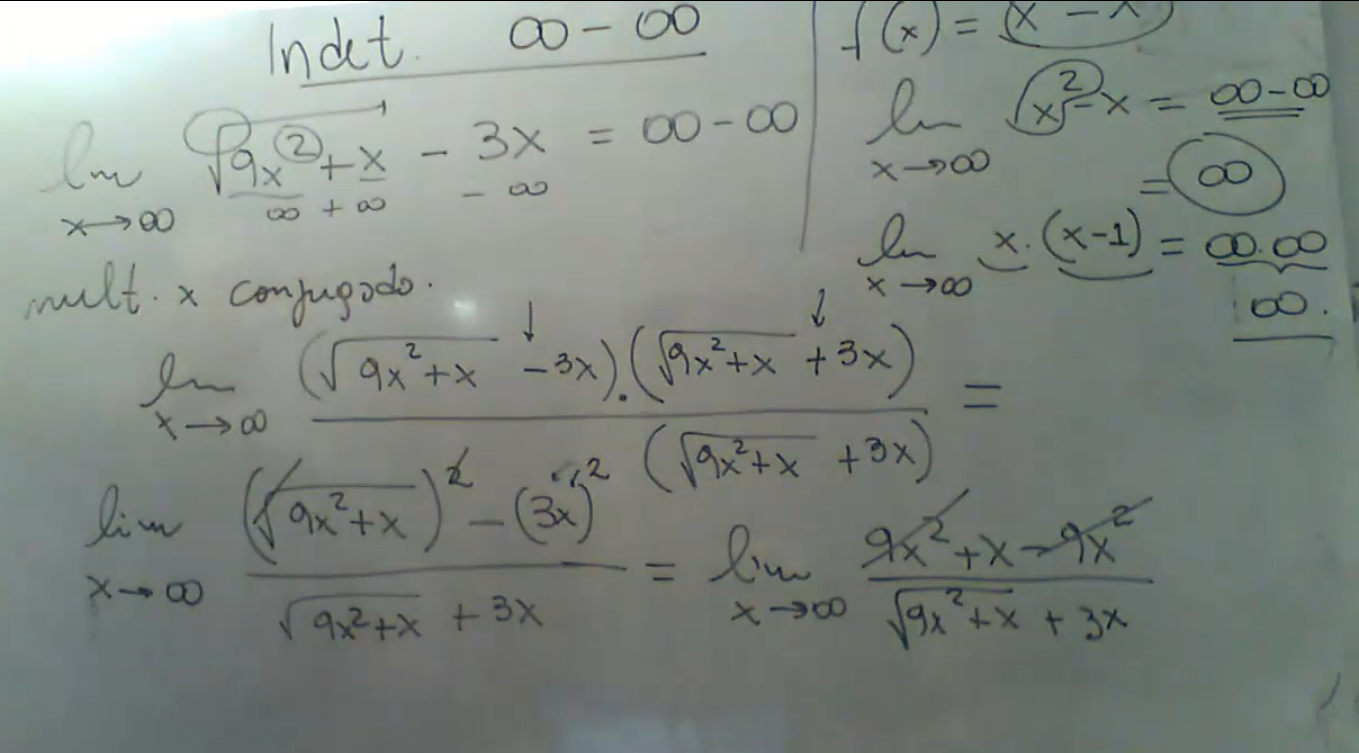 Indet. ∞ - ∞
lim x→∞ √(9x² + x) - 3x = ∞ - ∞
∞ + ∞ - ∞
mult. x conjugado.
lim x→∞ (√(9x²+x) - 3x).(√(9x²+x) + 3x) / (√(9x²+x) + 3x) =
lim x→∞ (√(9x²+x))² - (3x)² / √(9x²+x) + 3x = lim x→∞ 9x² + x - 9x² / √(9x²+x) + 3x
f(x) = (x - x)
lim x→∞ x² - x = ∞ - ∞
= ∞
lim x→∞ x.(x-1) = ∞.∞
∞.